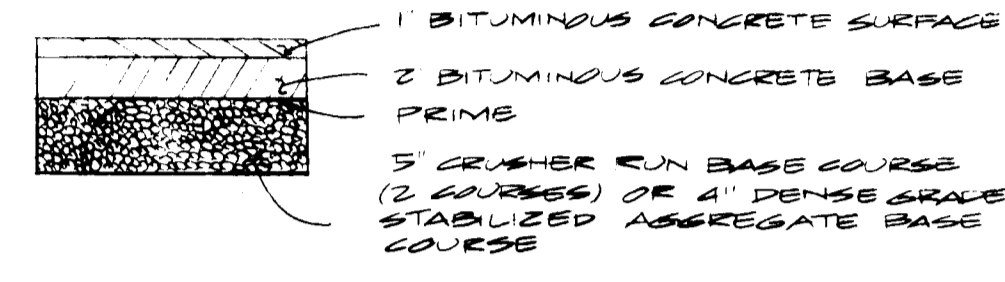 1" BITUMINOUS CONCRETE SURFACE
2" BITUMINOUS CONCRETE BASE
PRIME
5" CRUSHER RUN BASE COURSE
(2 COURSES) OR 4" DENSE GRADE
STABILIZED AGGREGATE BASE
COURSE